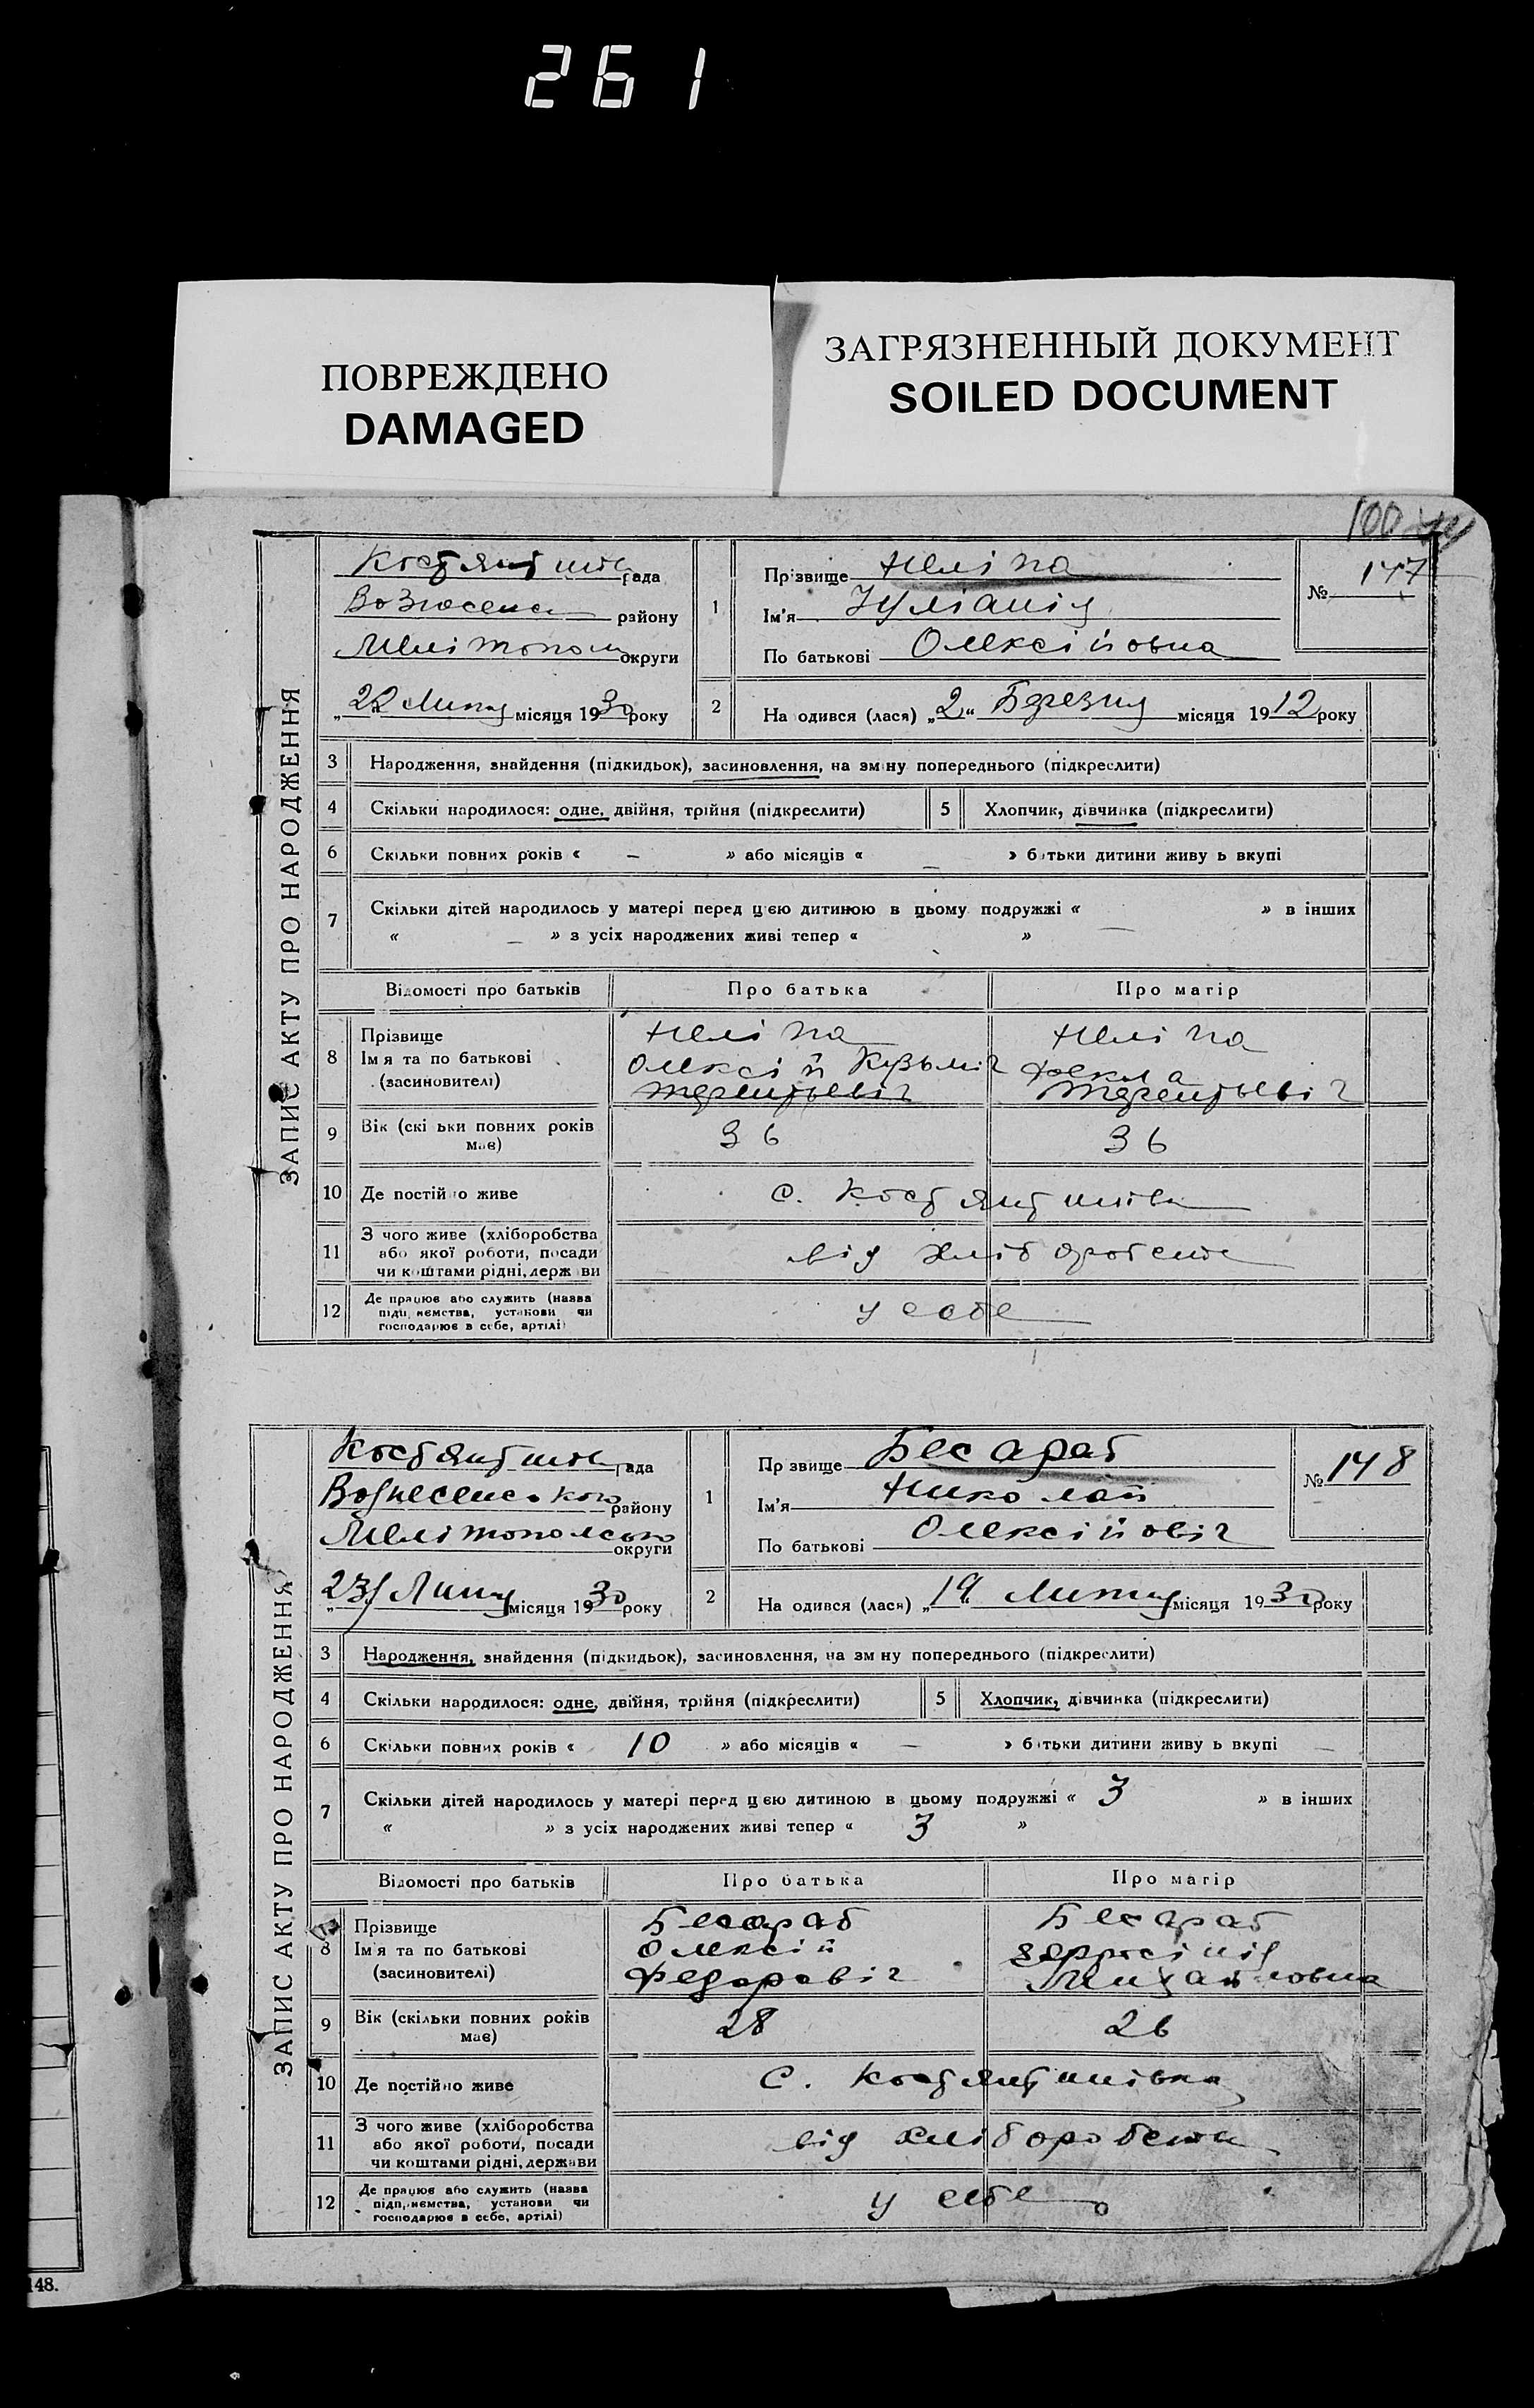 261
ПОВРЕЖДЕНО
DAMAGED
ЗАГРЯЗНЕННЫЙ ДОКУМЕНТ
SOILED DOCUMENT
100
ЗАПИС АКТУ ПРО НАРОДЖЕННЯ
Костянтинів рада
Вознесенс району
Мелітополь округи
„22 Липня місяця 1930 року
1
Прізвище Неліпа
Ім'я Іуліанія
По батькові Олексійовна
№ 147
2
На одився (лася) „2“ Березня місяця 1912 року
3 Народження, знайдення (підкидьок), засиновлення, на зміну попереднього (підкреслити)
4 Скільки народилося: одне, двійня, трійня (підкреслити) 5 Хлопчик, дівчинка (підкреслити)
6 Скільки повних років « – » або місяців « – » батьки дитини живу ь вкупі
7 Скільки дітей народилось у матері перед цією дитиною в цьому подружжі « — » в інших
« — » з усіх народжених живі тепер « »
Відомості про батьків Про батька Про матір
8 Прізвище
Ім'я та по батькові
(засиновителі)
Неліпа
Олексій Кузьміч
Терентьевіч
Неліпа
Фекла
Терентьевіч
9 Вік (скільки повних років має) 36 36
10 Де постійно живе с. Костянтинівк
11 З чого живе (хліборобства
або якої роботи, посади
чи коштами рідні, держави
від хліборобства
12 Де працює або служить (назва
підприємства, установи чи
господарює в себе, артілі)
у себе
ЗАПИС АКТУ ПРО НАРОДЖЕННЯ
Костянтинів рада
Вознесенського району
Мелітопольсько округи
„23 Липня місяця 1930 року
1
Пр звище Бесараб
Ім'я Николай
По батькові Олексійовіч
№ 148
2
На одився (лася) „19“ Липня місяця 1930 року
3 Народження, знайдення (підкидьок), засиновлення, на зм ну попереднього (підкреслити)
4 Скільки народилося: одне, двійня, трійня (підкреслити) 5 Хлопчик, дівчинка (підкреслити)
6 Скільки повних років « 10 » або місяців « – » батьки дитини живу ь вкупі –
7 Скільки дітей народилось у матері перед цією дитиною в цьому подружжі « 3 » в інших
« » з усіх народжених живі тепер « 3 »
Відомості про батьків Про батька Про матір
8 Прізвище
Ім'я та по батькові
(засиновителі)
Бесараб
Олексій
Федоровіч
Бесараб
Михайловна
9 Вік (скільки повних років має) 28 26
10 Де постійно живе с. Костянтинівка
11 З чого живе (хліборобства
або якої роботи, посади
чи коштами рідні, держави
від хліборобства
12 Де працює або служить (назва
підприємства, установи чи
господарює в себе, артілі)
у себе
148.